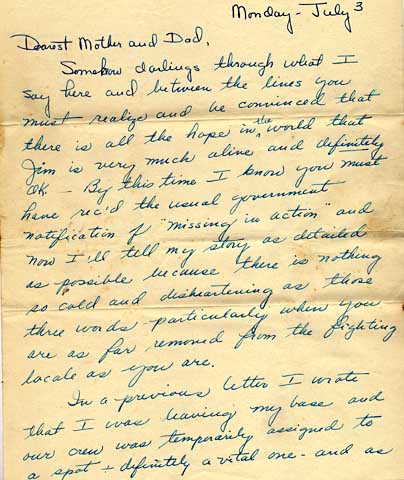 Monday - July 3
Dearest Mother and Dad,
Somehow darlings through what I
say here and between the lines you
must realize and be convinced that
there is all the hope in the world that
Jim is very much alive and definitely
OK. - By this time I know you must
have rec'd the usual government
notification of "missing in action" and
now I'll tell my story as detailed
as possible because there is nothing
so cold and disheartening as those
three words particularly when you
are as far removed from the fighting
locale as you are.
In a previous letter I wrote
that I was leaving my base and
our crew was temporarily assigned to
a spot - definitely a vital one - and as